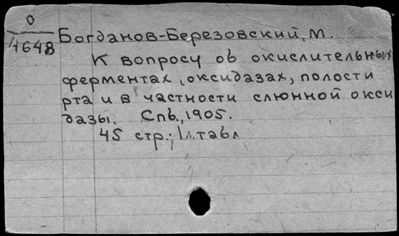 0
4648
Богданов-Березовский, М.
К вопросу об окислительных
ферментах, оксидазах, полости
рта и в частности слюнной окси
дазы. Спб., 1905.
45 стр.; 1 л. табл